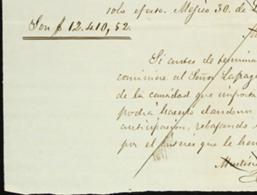 solo efecto. Méjico 30. de
Son $ 12.410, 52.
Si antes de termina
conviniere al Señor Lapaga
de la cantidad que impor
podrá hacerlo dandonos
anticipacion, rebajando
por el interés que le hon